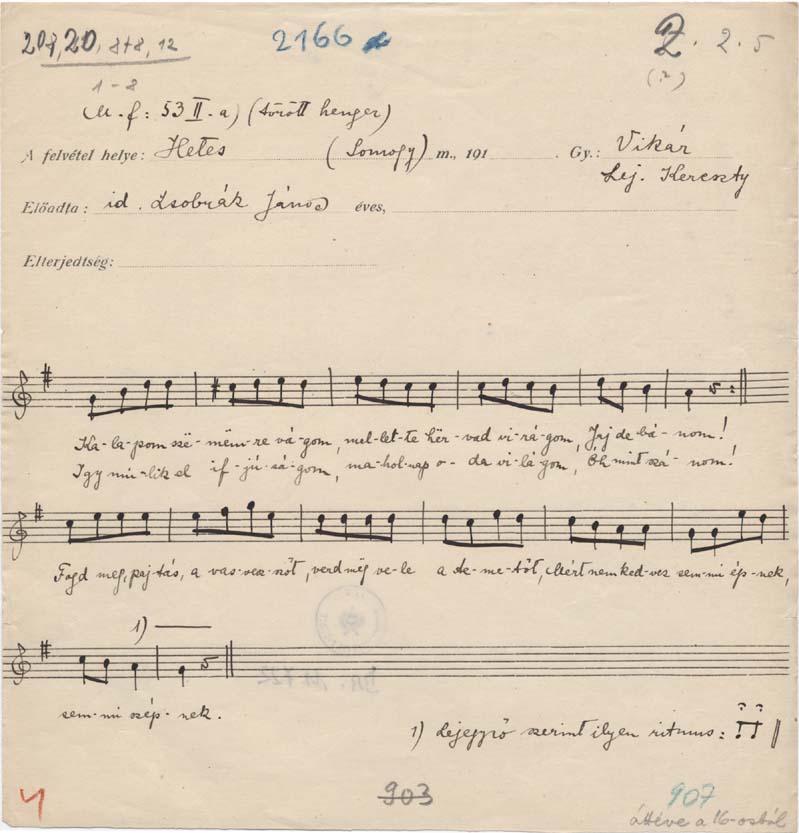 20, 8+8, 12
2166
2. 2. 5
(2)
1-8
M. f: 53 II. a) (törött henger)
A felvétel helye: Hetes (Somogy) m., 191 . Gy.: Vikár
Lej. Kereszty
Előadta: id. Zsobrák János éves,
Elterjedtség:
Ka-la-pom szë-mëm-re vá-gom, mel-let-te hër-vad vi-rá-gom, Jaj de bá-nom!
Igy mú-lik el if-jú-sá-gom, ma-hol-nap o-da vi-lá-gom, Óh mint szá-nom!
Fogd meg, paj-tás, a vas-vesz-szőt, verd mëg ve-le a te-me-tőt, Mért nem ked-vez sem-mi ép-nek,
1)
sem-mi szép-nek.
1) Lejegyző szerint ilyen ritmus:
903
907
áttéve a 16-osból